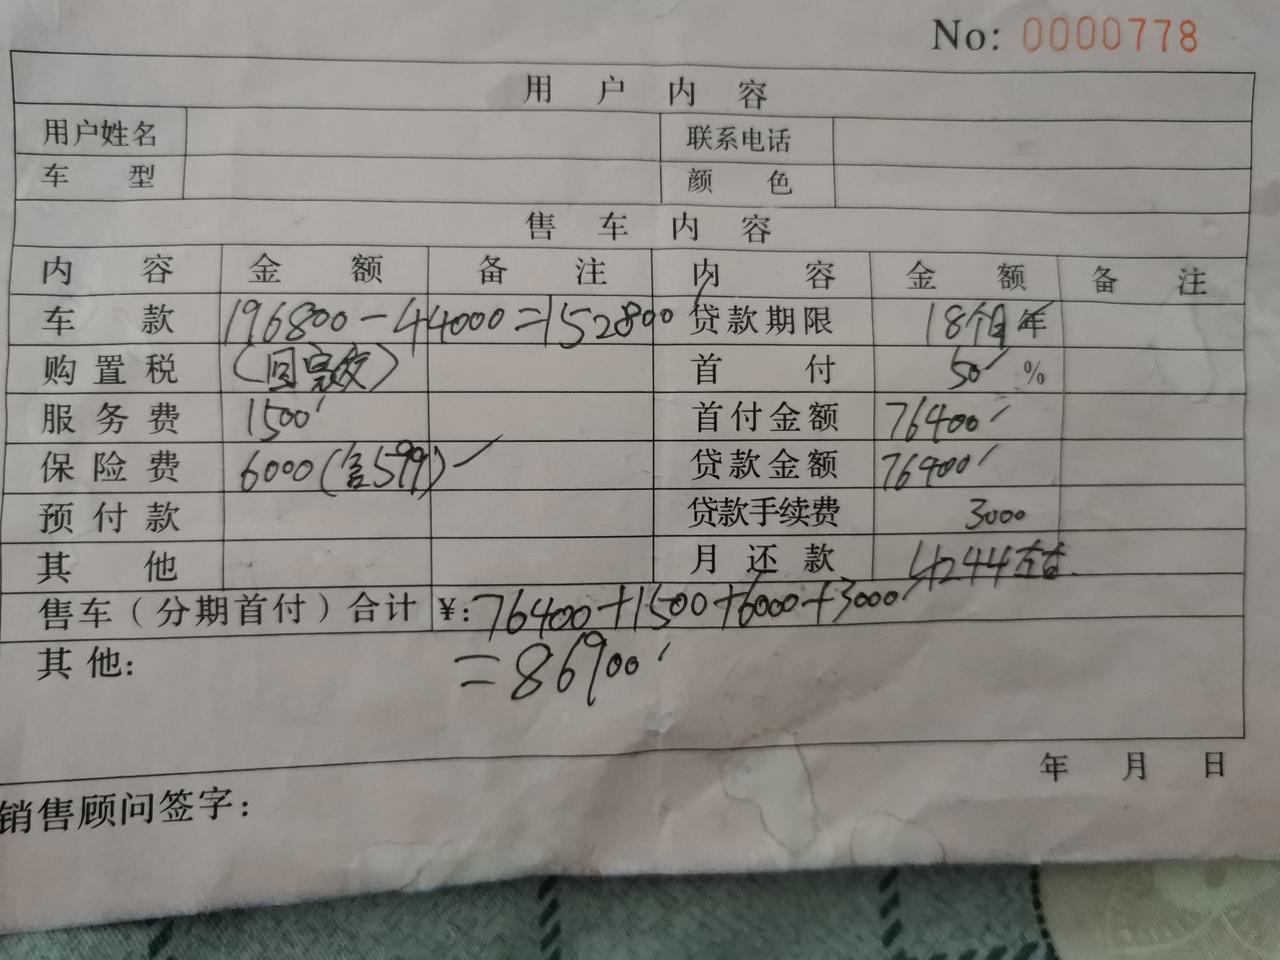 No: 0000778
用户内容
用户姓名 联系电话
车型 颜色
售车内容
内容 金额 备注 内容 金额 备注
车款 196800-44000=152800 贷款期限 18个月 年
购置税 (国家交) 首付 50 %
服务费 1500 首付金额 76400
保险费 6000(含599) 贷款金额 76400
预付款 贷款手续费 3000
其他 月还款 4244左右.
售车(分期首付)合计 ¥: 76400+1500+6000+3000
其他: =86900
年 月 日
销售顾问签字: